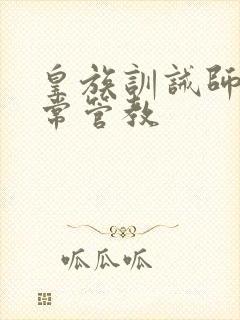 皇族訓誡師
常管教
呱瓜呱